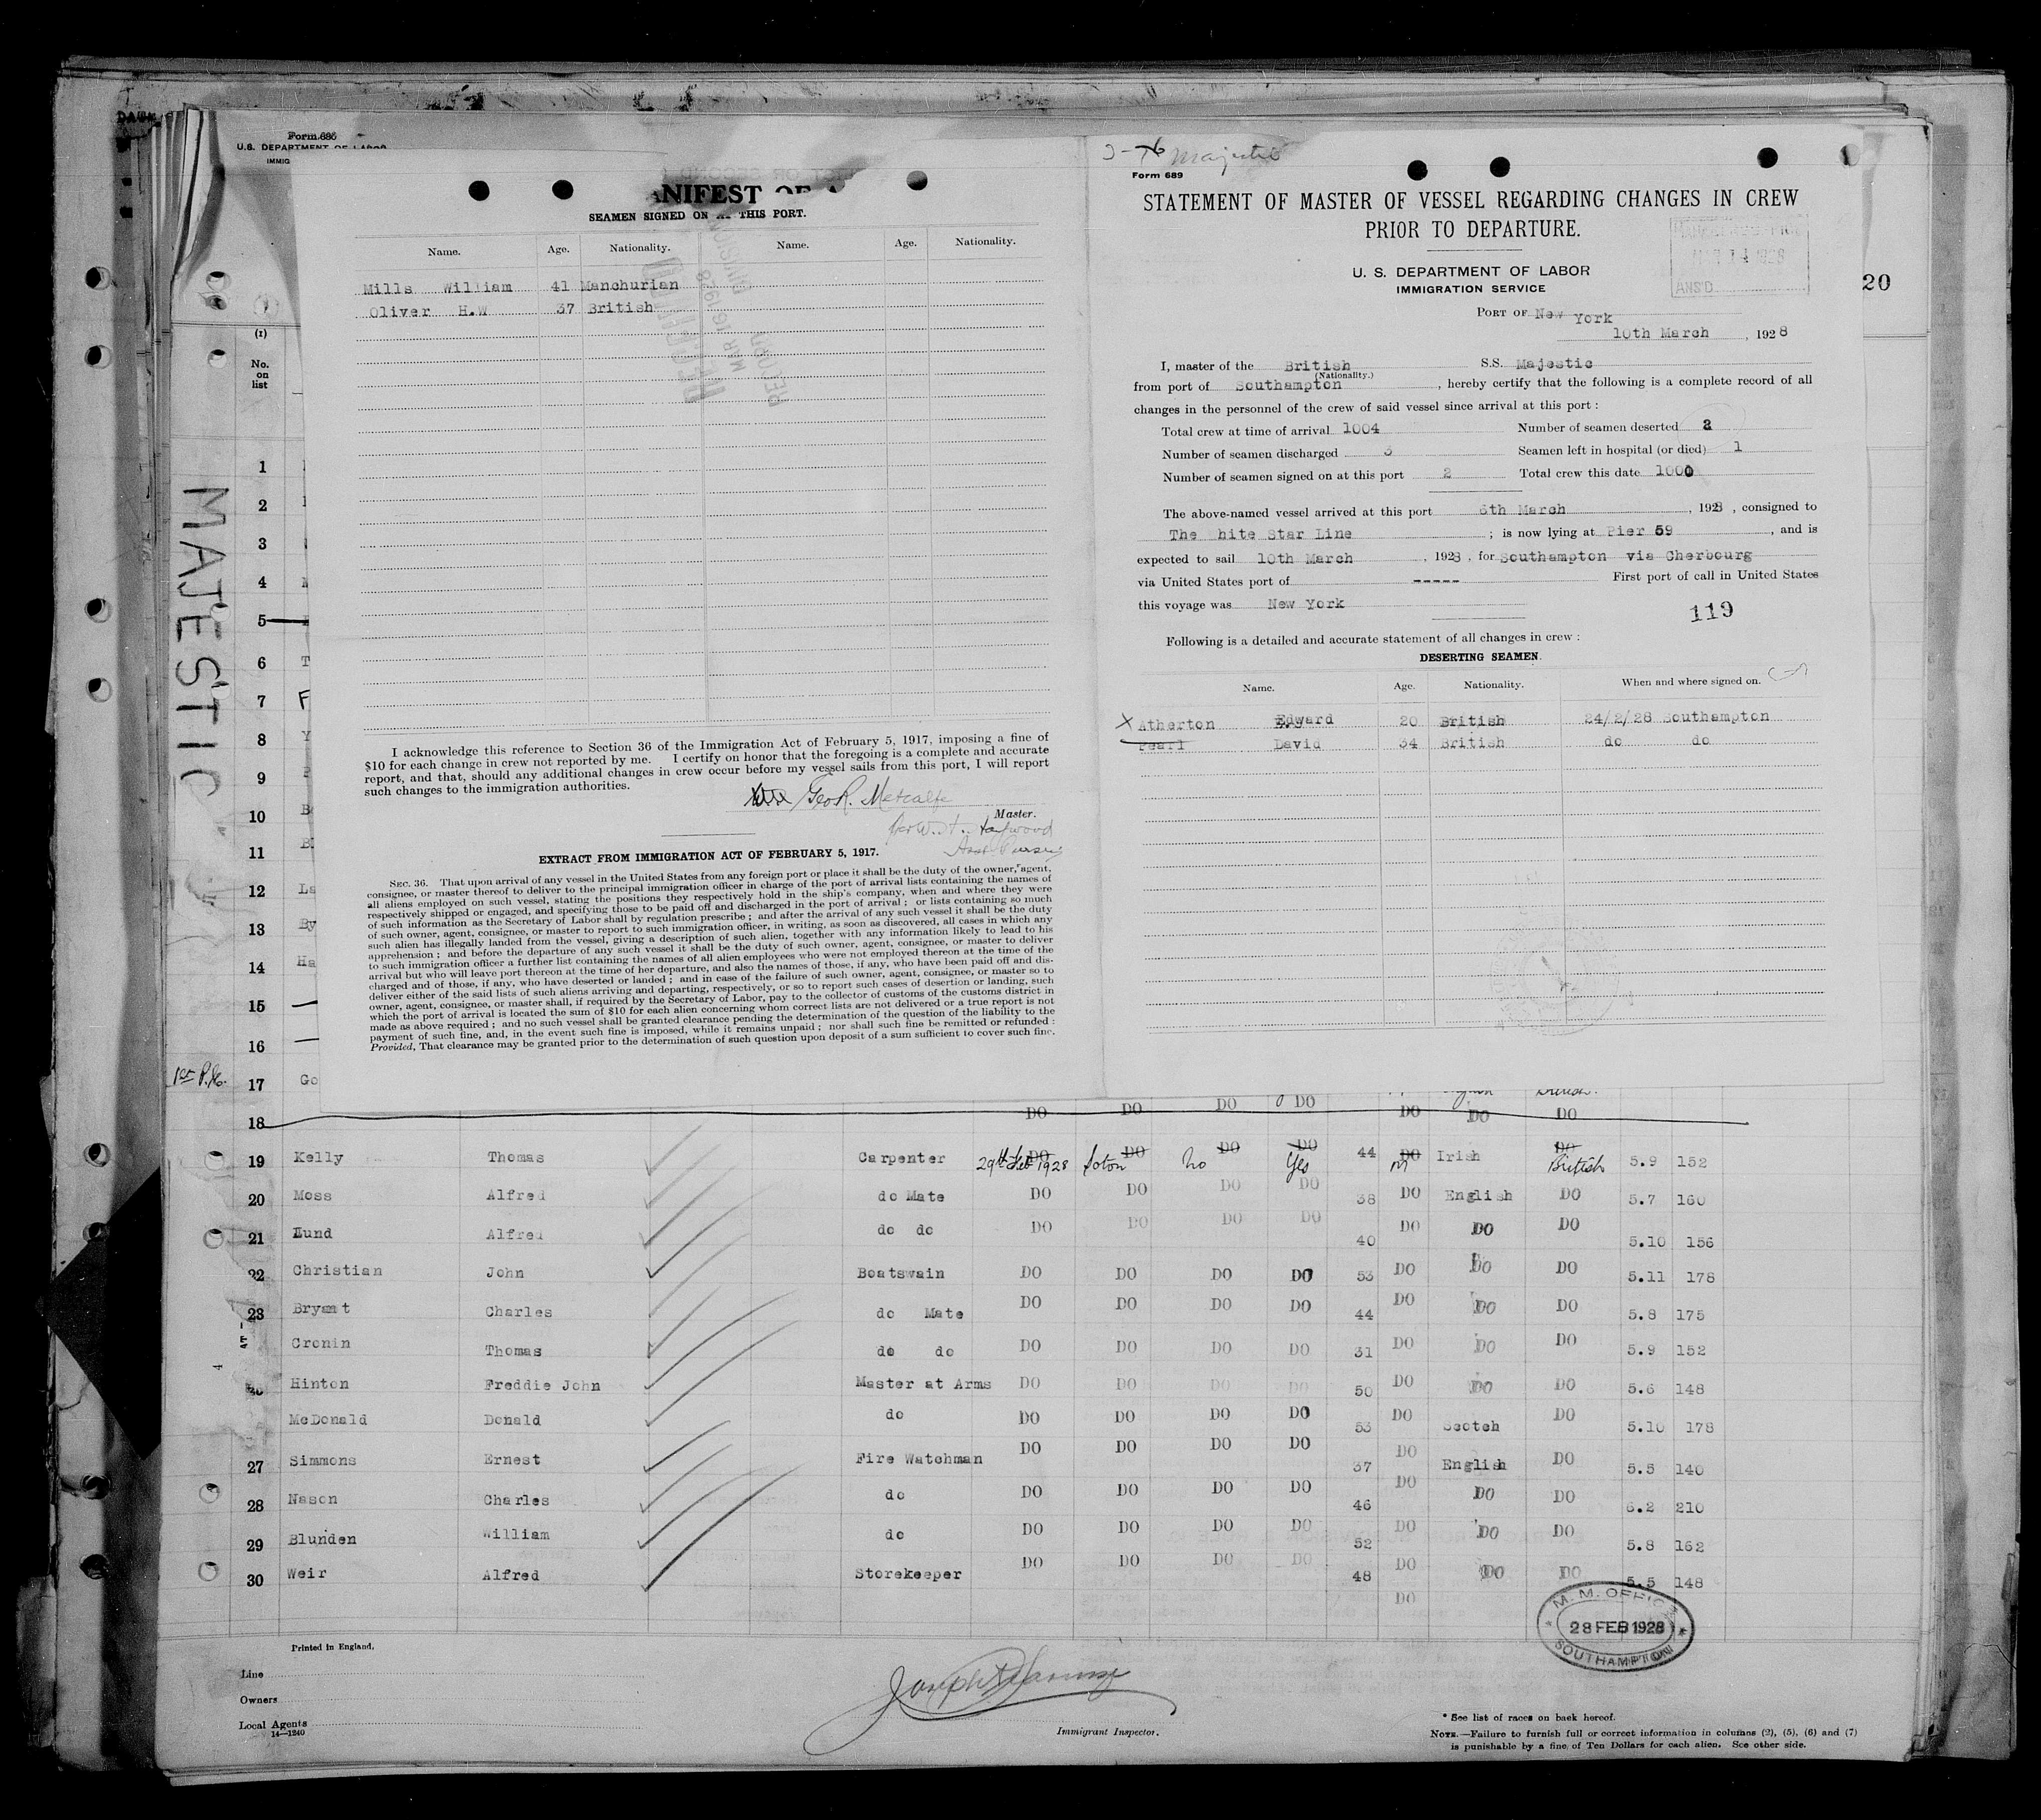 Form 685
U.S. DEPARTMENT OF LABOR
IMMIG
(1)
No.
on
list
MAJESTIC
1
2
3
4
5
6
7 F
8 Y
9
10 Bo
11 Bl
12 La
13 By
14 Ha
15
16
1st P.O.
17 Go
ANIFEST OF A
SEAMEN SIGNED ON AT THIS PORT.
Name. Age. Nationality. Name. Age. Nationality.
Mills William 41 Manchurian
Oliver H.W 37 British
MAR 16 1928
RECORD DIVISION
I acknowledge this reference to Section 36 of the Immigration Act of February 5, 1917, imposing a fine of
$10 for each change in crew not reported by me. I certify on honor that the foregoing is a complete and accurate
report, and that, should any additional changes in crew occur before my vessel sails from this port, I will report
such changes to the immigration authorities.
Geo R. Metcalfe
Master.
per W. H. Haywood
Asst Purser
EXTRACT FROM IMMIGRATION ACT OF FEBRUARY 5, 1917.
SEC. 36. That upon arrival of any vessel in the United States from any foreign port or place it shall be the duty of the owner, agent,
consignee, or master thereof to deliver to the principal immigration officer in charge of the port of arrival lists containing the names of
all aliens employed on such vessel, stating the positions they respectively hold in the ship's company, when and where they were
respectively shipped or engaged, and specifying those to be paid off and discharged in the port of arrival; or lists containing so much
of such information as the Secretary of Labor shall by regulation prescribe; and after the arrival of any such vessel it shall be the duty
of such owner, agent, consignee, or master to report to such immigration officer, in writing, as soon as discovered, all cases in which any
such alien has illegally landed from the vessel, giving a description of such alien, together with any information likely to lead to his
apprehension; and before the departure of any such vessel it shall be the duty of such owner, agent, consignee, or master to deliver
to such immigration officer a further list containing the names of all alien employees who were not employed thereon at the time of the
arrival but who will leave port thereon at the time of her departure, and also the names of those, if any, who have been paid off and dis-
charged and of those, if any, who have deserted or landed; and in case of the failure of such owner, agent, consignee, or master so to
deliver either of the said lists of such aliens arriving and departing, respectively, or so to report such cases of desertion or landing, such
owner, agent, consignee, or master shall, if required by the Secretary of Labor, pay to the collector of customs of the customs district in
which the port of arrival is located the sum of $10 for each alien concerning whom correct lists are not delivered or a true report is not
made as above required; and no such vessel shall be granted clearance pending the determination of the question of the liability to the
payment of such fine, and, in the event such fine is imposed, while it remains unpaid; nor shall such fine be remitted or refunded:
Provided, That clearance may be granted prior to the determination of such question upon deposit of a sum sufficient to cover such fine.
Majestic
Form 689
STATEMENT OF MASTER OF VESSEL REGARDING CHANGES IN CREW
PRIOR TO DEPARTURE.
MAR 14 1928
ANS'D
U. S. DEPARTMENT OF LABOR
IMMIGRATION SERVICE
20
PORT OF New York
10th March, 1928
I, master of the British S.S. Majestic
(Nationality.)
from port of Southampton, hereby certify that the following is a complete record of all
changes in the personnel of the crew of said vessel since arrival at this port:
Total crew at time of arrival 1004 Number of seamen deserted 2
Number of seamen discharged 3 Seamen left in hospital (or died) 1
Number of seamen signed on at this port 2 Total crew this date 1000
The above-named vessel arrived at this port 6th March, 1928, consigned to
The White Star Line; is now lying at Pier 59, and is
expected to sail 10th March, 1928, for Southampton via Cherbourg
via United States port of ----- First port of call in United States
this voyage was New York
119
Following is a detailed and accurate statement of all changes in crew:
DESERTING SEAMEN.
Name. Age. Nationality. When and where signed on.
X Atherton Edward 20 British 24/2/28 Southampton
Pearl David 34 British do do
18 DO DO DO DO DO DO DO
19 Kelly Thomas Carpenter 29th Feb 1928 Soton No Yes 44 m Irish British 5.9 152
20 Moss Alfred do Mate DO DO DO DO 38 DO English DO 5.7 160
21 Lund Alfred do do DO DO DO DO 40 DO DO DO 5.10 156
22 Christian John Boatswain DO DO DO DO 53 DO DO DO 5.11 178
23 Bryant Charles do Mate DO DO DO DO 44 DO DO DO 5.8 175
Cronin Thomas do do DO DO DO DO 31 DO DO DO 5.9 152
Hinton Freddie John Master at Arms DO DO DO DO 50 DO DO DO 5.6 148
McDonald Donald do DO DO DO DO 53 DO Scotch DO 5.10 178
27 Simmons Ernest Fire Watchman DO DO DO DO 37 DO English DO 5.5 140
28 Nason Charles do DO DO DO DO 46 DO DO DO 6.2 210
29 Blunden William do DO DO DO DO 52 DO DO DO 5.8 162
30 Weir Alfred Storekeeper DO DO DO DO 48 DO DO DO 5.5 148
DO
M. M. OFFICE
28 FEB 1928
SOUTHAMPTON
Printed in England.
Line
Owners
Local Agents
14—1240
Immigrant Inspector.
* See list of races on back hereof.
NOTE.—Failure to furnish full or correct information in columns (2), (5), (6) and (7)
is punishable by a fine of Ten Dollars for each alien. See other side.